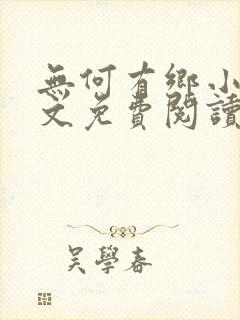 無何有鄉小
文免費閱讀
吳學春